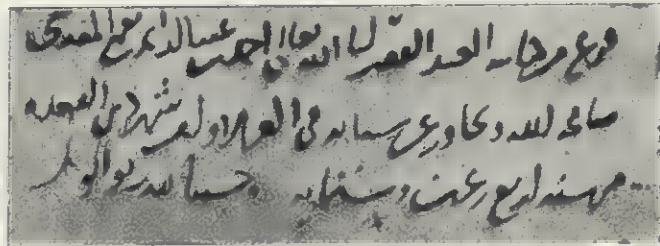 فرغ من كتابته العبد الفقير الى الله تعالى احمد بن عبد الدايم بن نعمة المقدسي
سامحه الله وتجاوز عن سيئاته في العشر الاول من شهر ذي القعدة
من سنة اربع وستمايه وحسبنا الله ونعم الوكيل